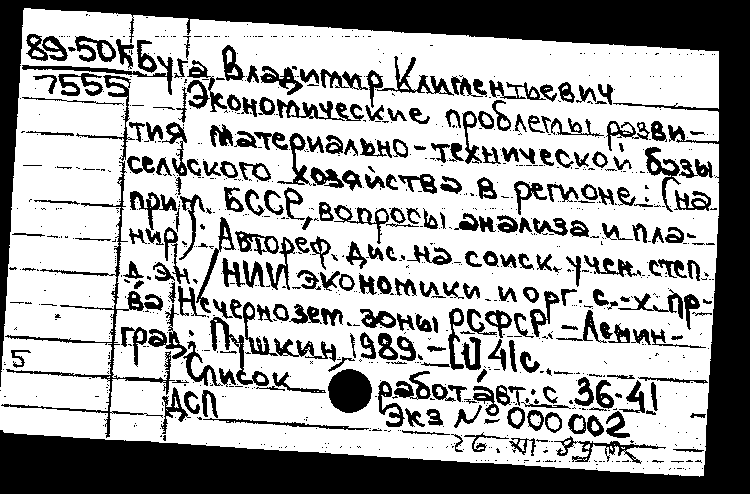 89-50К Буга, Владимир Климентьевич
7555
Экономические проблемы разви-
тия материально-технической базы
сельского хозяйства в регионе: (на
прим. БССР, вопросы анализа и пла-
нир): Автореф. дис. на соиск. учен. степ.
д. эн. / НИИ экономики и орг. с.-х. пр-
ва Нечернозем. зоны РСФСР. - Ленин-
град; Пушкин, 1989. - [1] 41 с.
5 Список работ авт.: с. 36-41
ДСП Экз № 000002
26. XII. 89